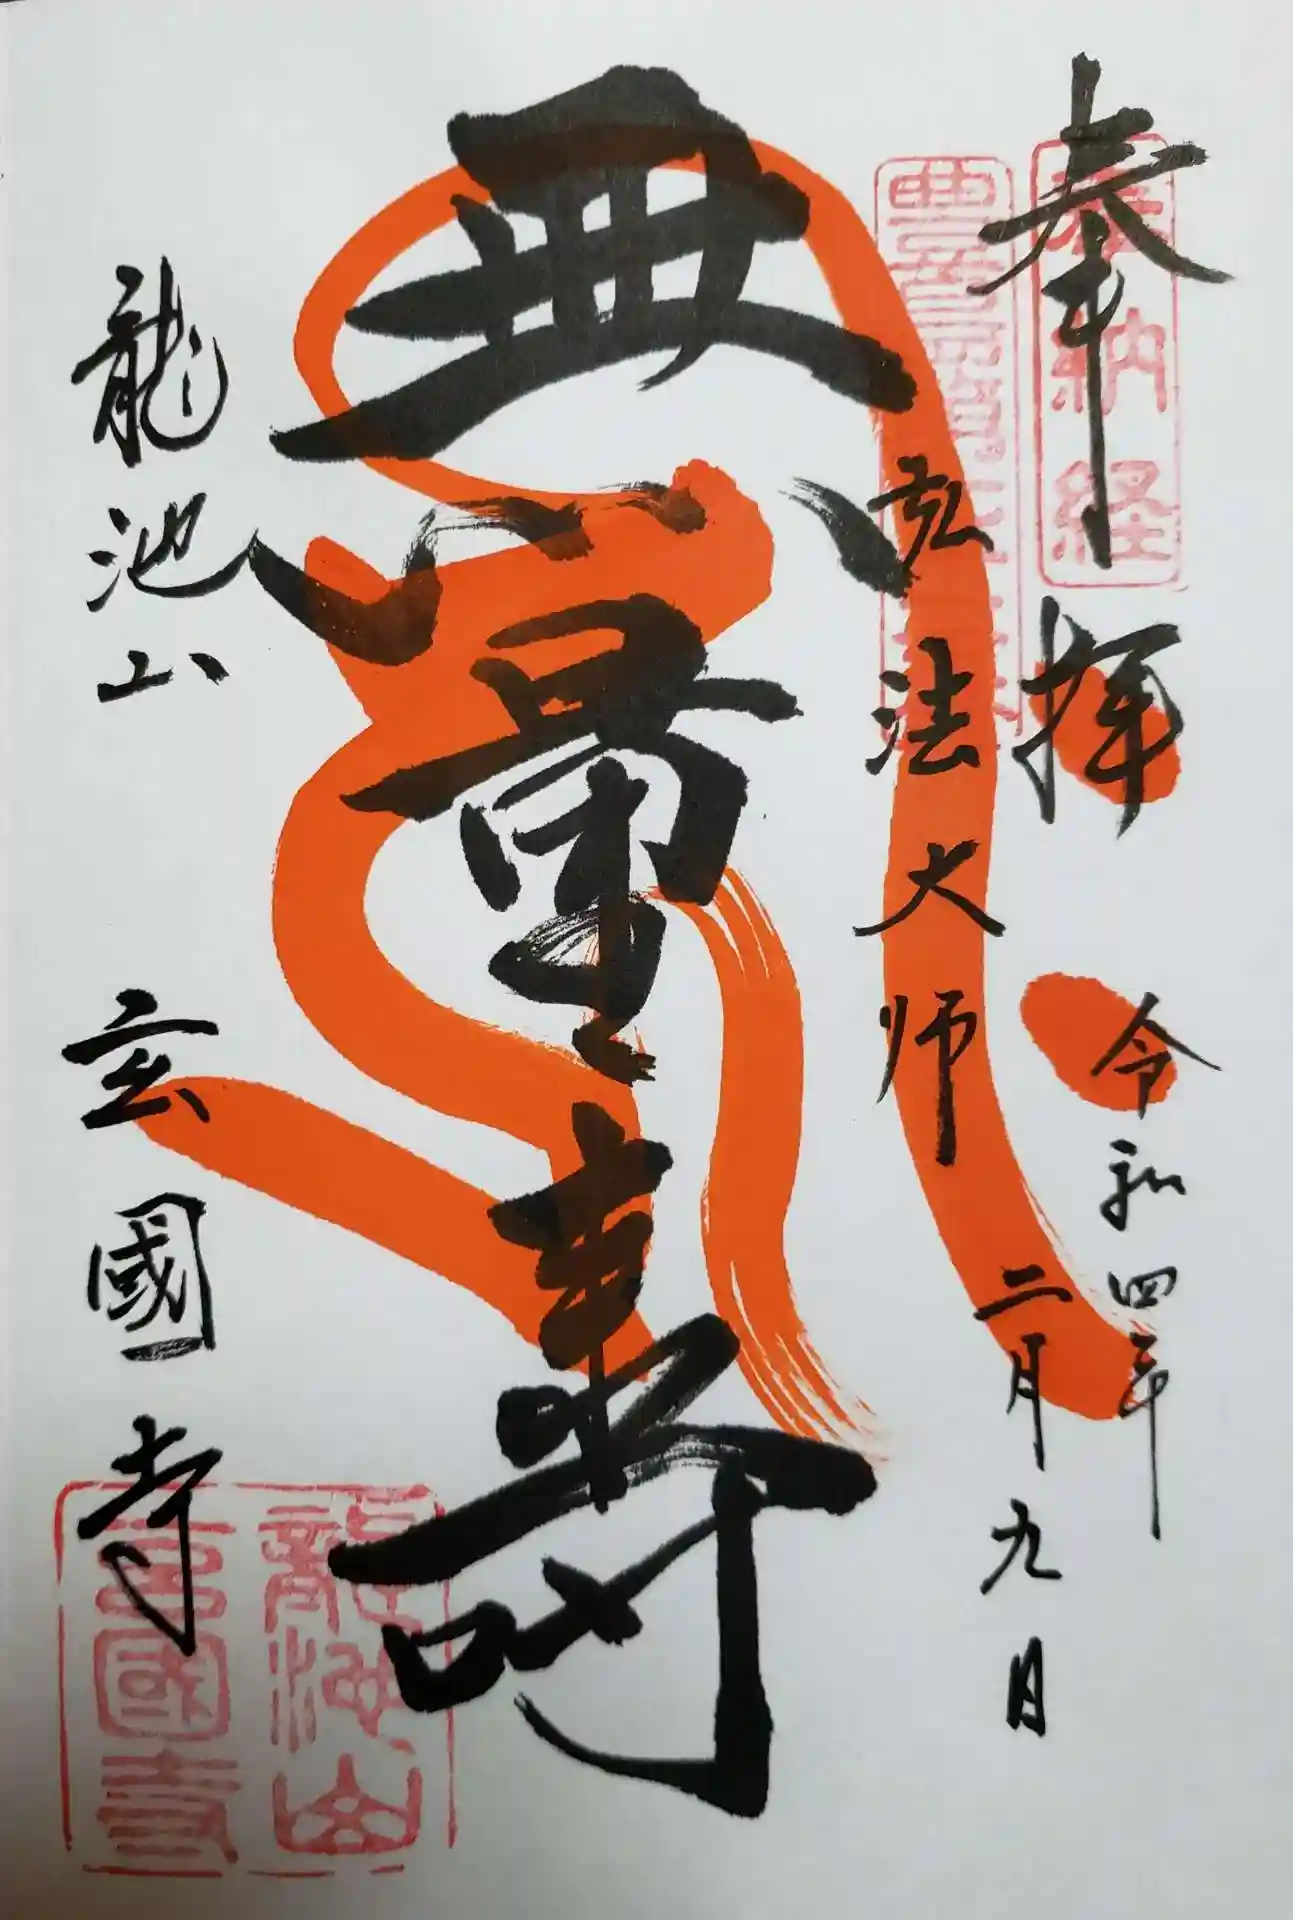 奉拝
令和四年
二月九日
弘法大师
無量寿
龍池山
玄國寺
奉納経
龍池山
玄國寺